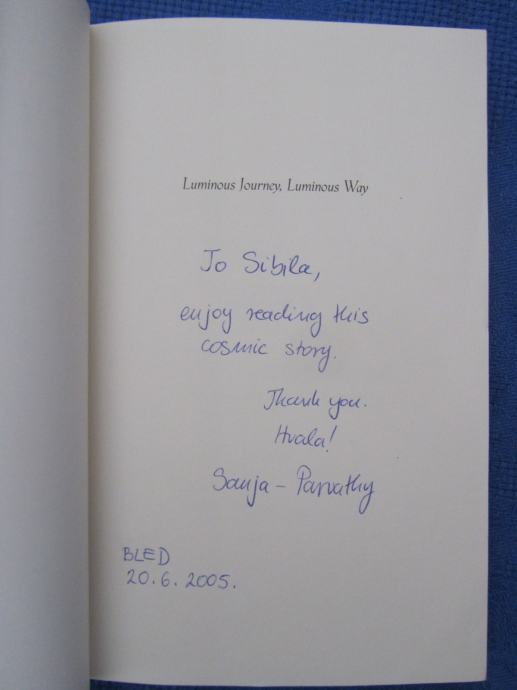 Luminous Journey, Luminous Way
To Sibila,
enjoy reading this
cosmic story.
Thank you.
Hvala!
Sanja - Parvathy
BLED
20.6.2005.